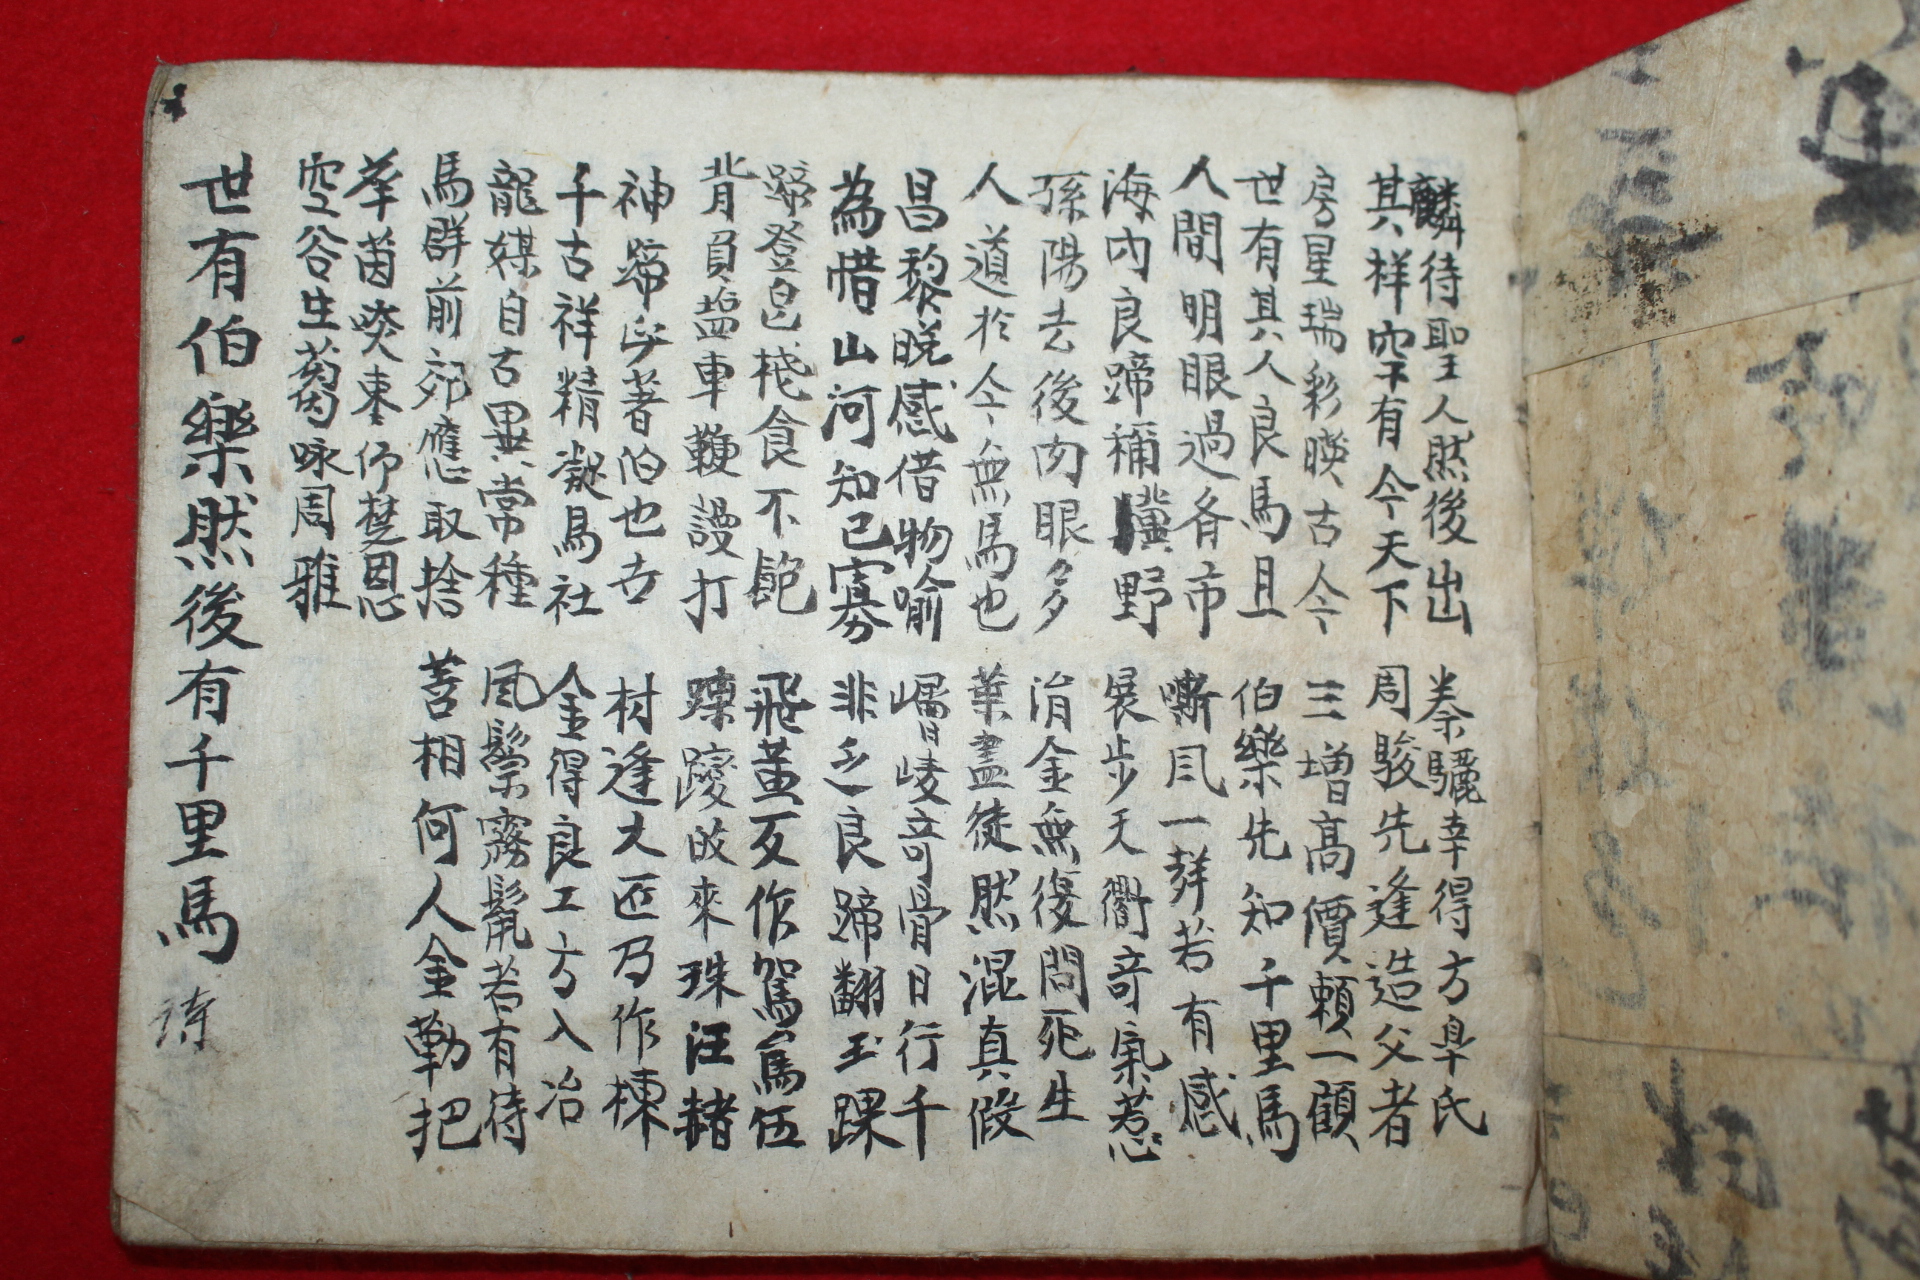 麟待聖人然後出 秦驪幸得方皐氏
其祥空有今天下 周駿先逢造父者
房星瑞彩暎古今 三增高價賴一顧
世有其人良馬且 伯樂先知千里馬
人間明眼過各市 嘶風一聲若有感
海內良蹄稱驥野 展步天衢奇氣惹
孫陽去後肉眼多 涓金無復問死生
人道於今無馬也 葉盡徒然混真假
昌黎晩感借物喻 崚奇骨日行千
為惜山河知己寡 非乏良蹄翻玉踝
蹄登皂棧食不飽 飛黃反作駑駘伍
背負鹽車鞭謾打 來珠汗赭
神蹄著伯也古 材逢大匠乃作棟
千古祥精凝馬社 金得良工方入冶
龍媒自古異常種 風鬃霧鬣若有待
馬群前郊應取捨 相何人金勒把
華茵啖棗仰楚恩
空谷生蒭咏周雅
世有伯樂然後有千里馬 詩